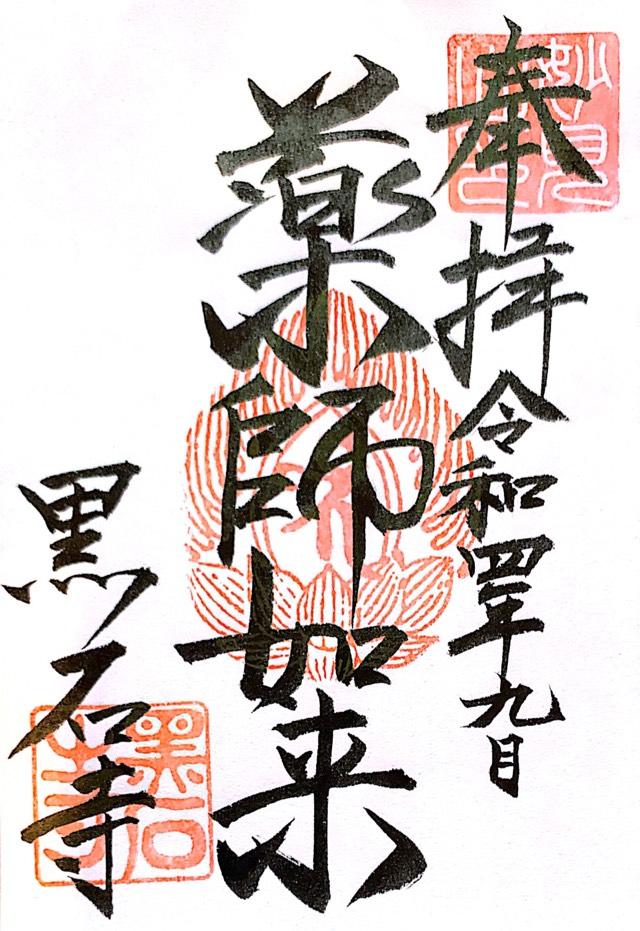 奉拝 令和四年九月
薬師如来
黒石寺
妙見
黒石寺